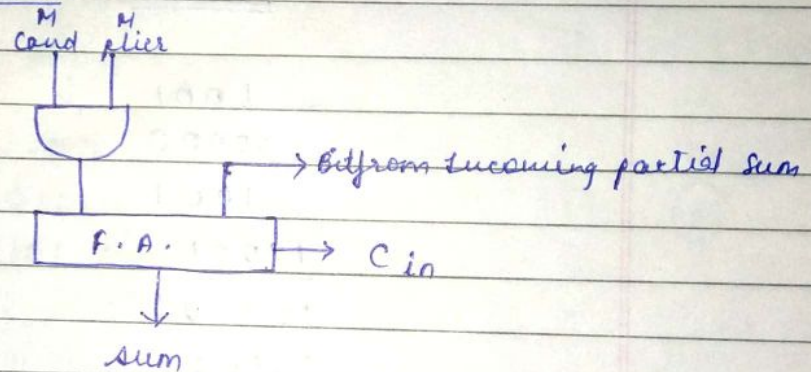 M M
Cand plier
Bit from Incoming partial sum
F.A.
C in
sum